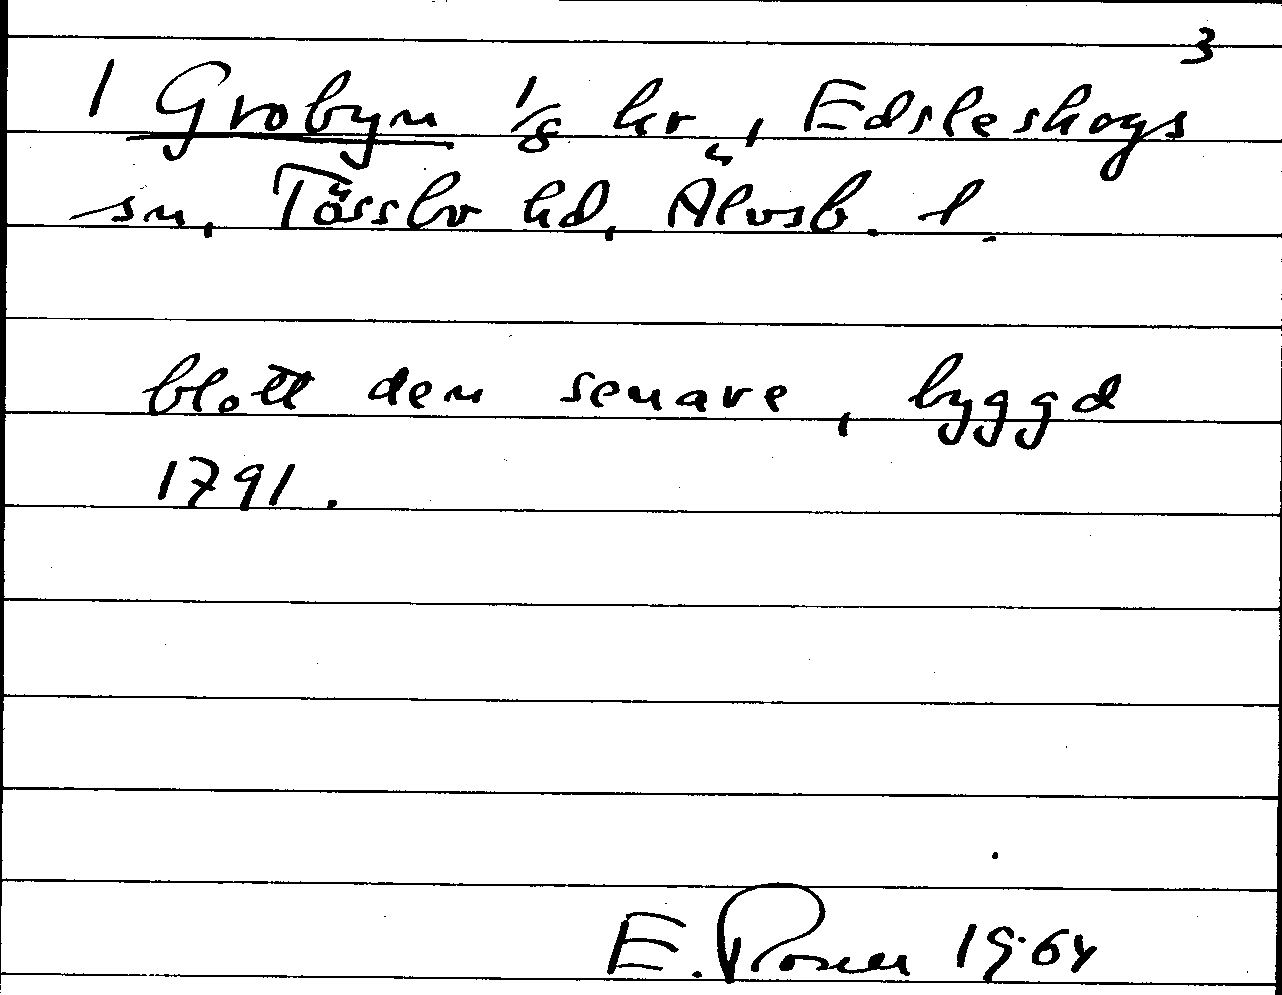 3
1 Grobyn 1/8 hr, Edsleskogs
sn, Tössbo hd, Älvsb. l.
blott den senare, byggd
1791.
E. Rosén 1964